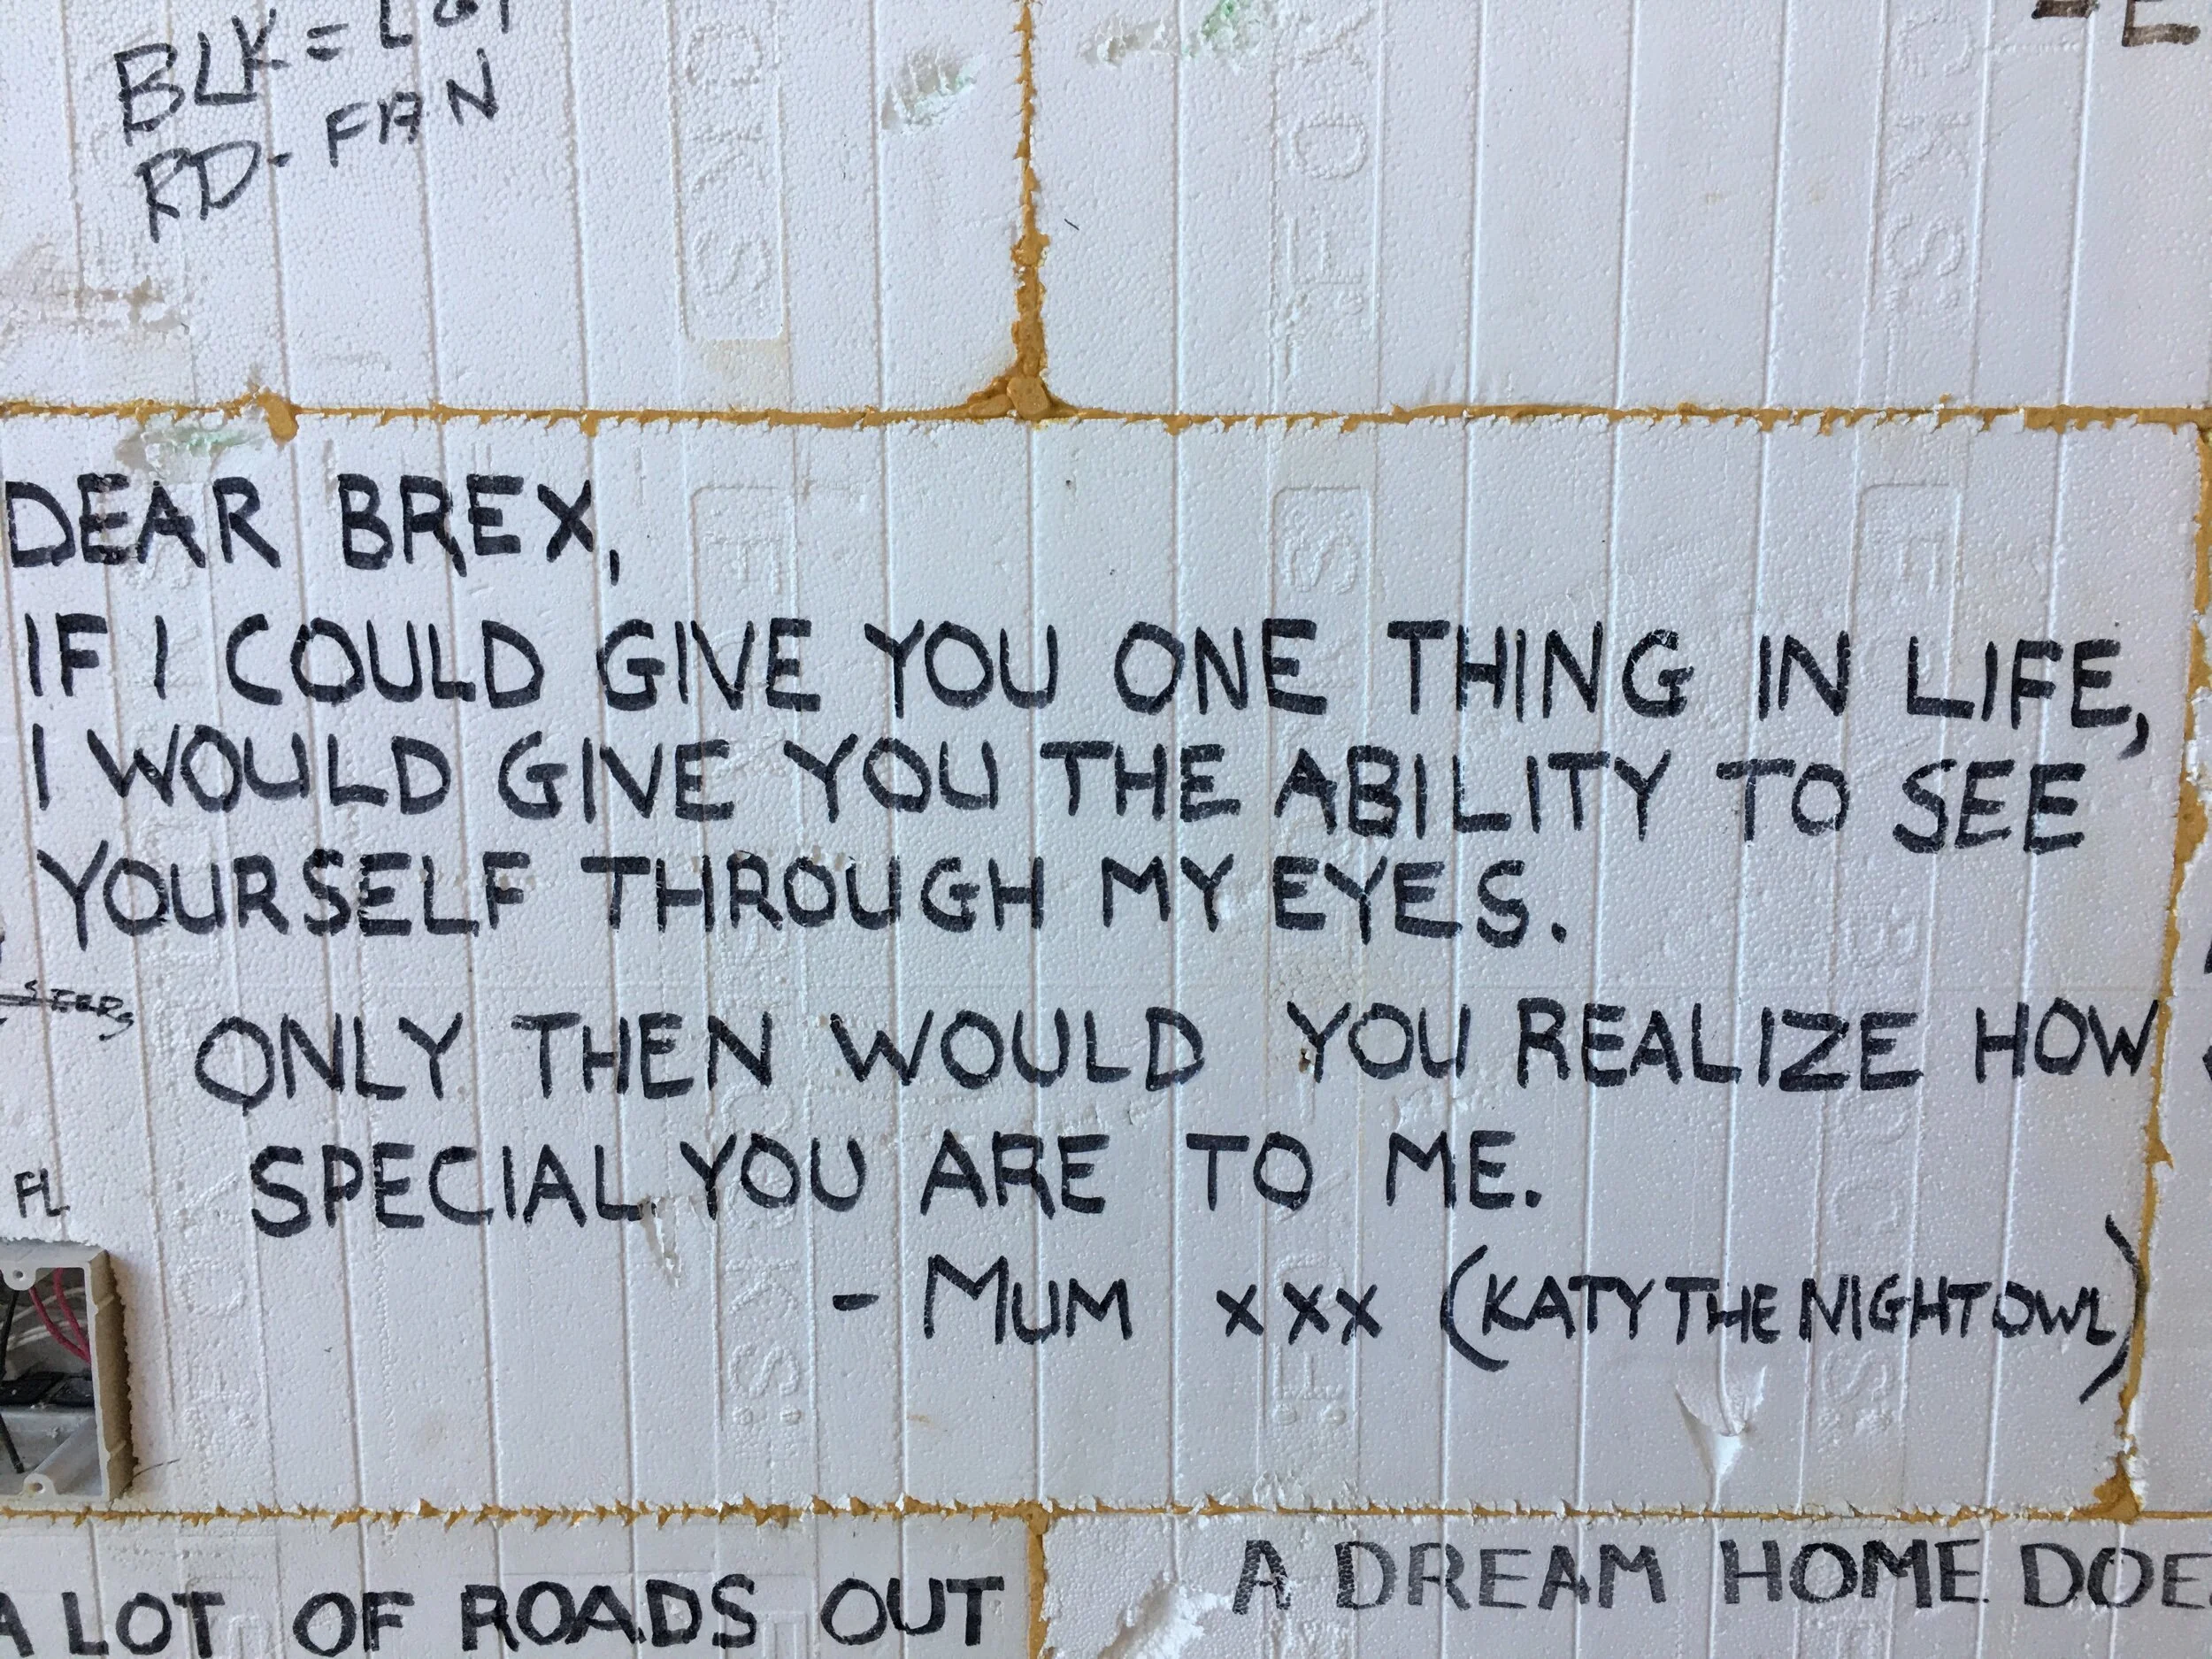 BLK =
RD - FAN
DEAR BREX,
IF I COULD GIVE YOU ONE THING IN LIFE,
I WOULD GIVE YOU THE ABILITY TO SEE
YOURSELF THROUGH MY EYES.
ONLY THEN WOULD YOU REALIZE HOW
SPECIAL YOU ARE TO ME.
- MUM xxx (KATY THE NIGHT OWL)
FL
A LOT OF ROADS OUT
A DREAM HOME DOE